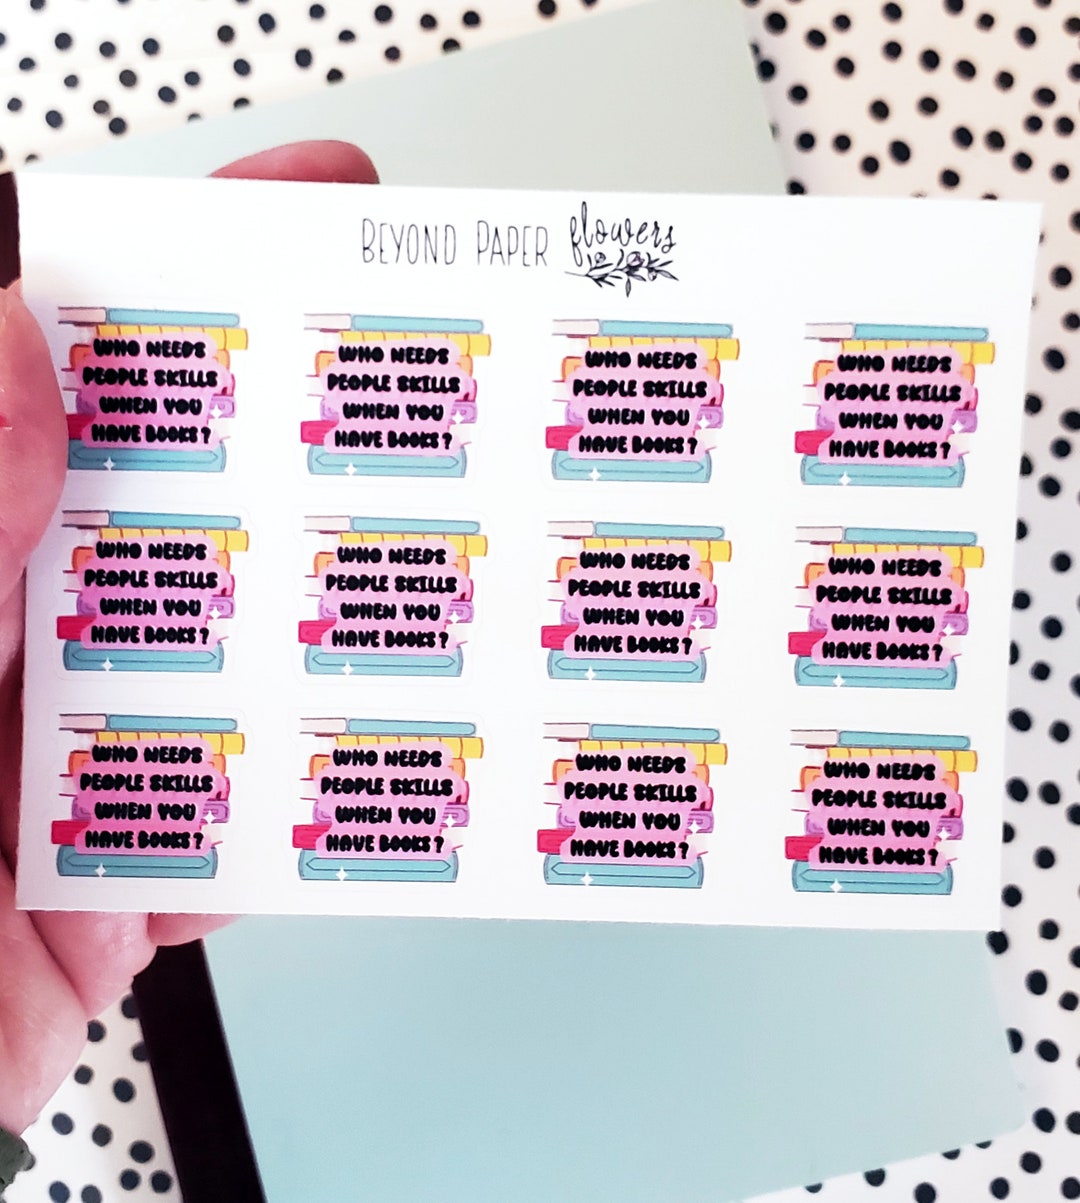 BEYOND PAPER flowers
WHO NEEDS
PEOPLE SKILLS
WHEN YOU
HAVE BOOKS?
WHO NEEDS
PEOPLE SKILLS
WHEN YOU
HAVE BOOKS?
WHO NEEDS
PEOPLE SKILLS
WHEN YOU
HAVE BOOKS?
WHO NEEDS
PEOPLE SKILLS
WHEN YOU
HAVE BOOKS?
WHO NEEDS
PEOPLE SKILLS
WHEN YOU
HAVE BOOKS?
WHO NEEDS
PEOPLE SKILLS
WHEN YOU
HAVE BOOKS?
WHO NEEDS
PEOPLE SKILLS
WHEN YOU
HAVE BOOKS?
WHO NEEDS
PEOPLE SKILLS
WHEN YOU
HAVE BOOKS?
WHO NEEDS
PEOPLE SKILLS
WHEN YOU
HAVE BOOKS?
WHO NEEDS
PEOPLE SKILLS
WHEN YOU
HAVE BOOKS?
WHO NEEDS
PEOPLE SKILLS
WHEN YOU
HAVE BOOKS?
WHO NEEDS
PEOPLE SKILLS
WHEN YOU
HAVE BOOKS?